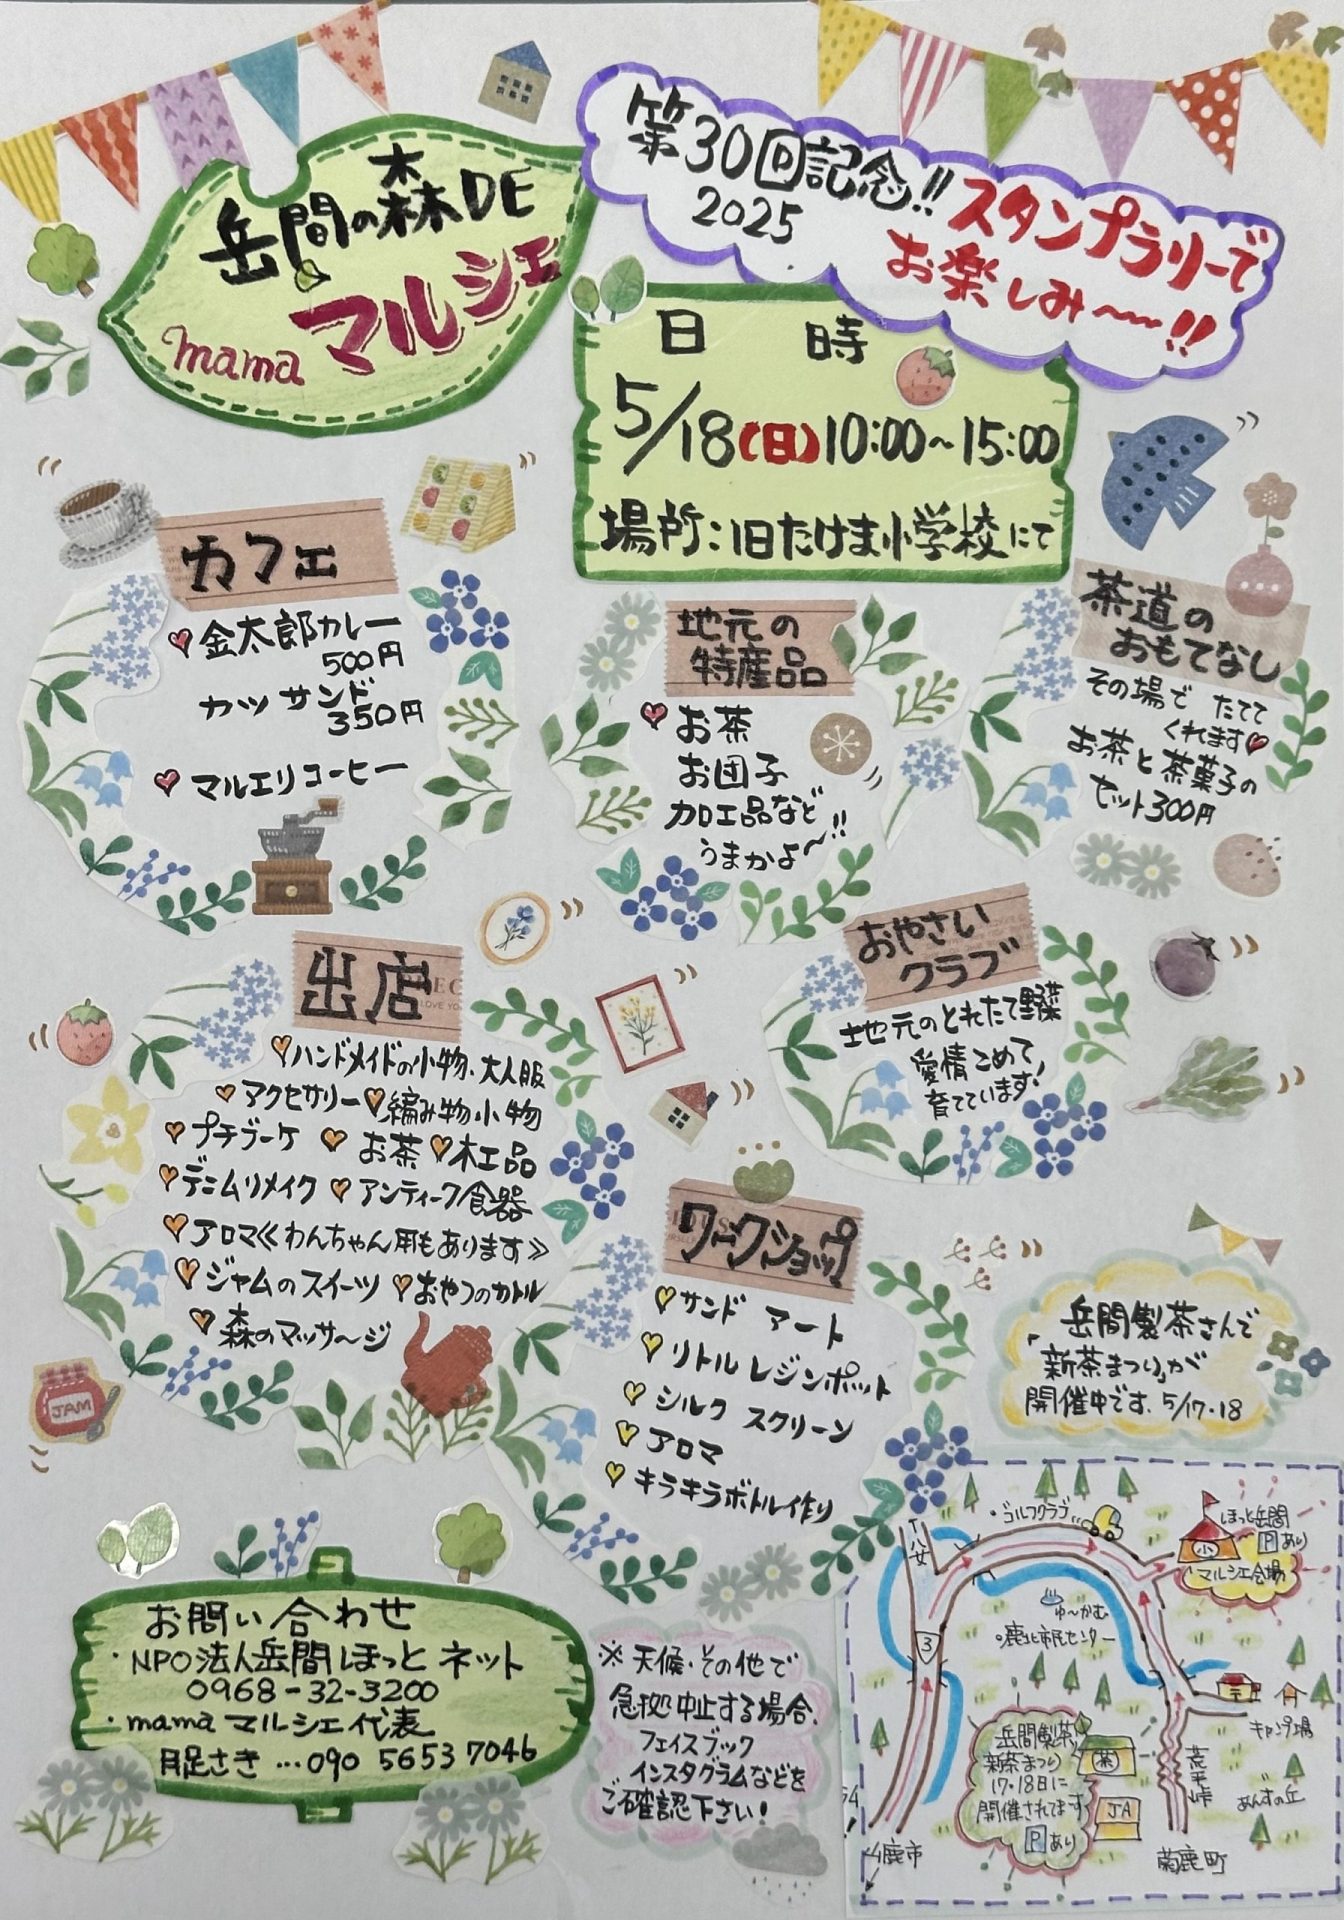 岳間の森DE
mama マルシェ
第30回記念!!
2025
スタンプラリーで
お楽しみ〜〜!!
日 時
5/18(日)10:00〜15:00
場所:旧たけま小学校にて
カフェ
金太郎カレー
500円
カツサンド
350円
マルエリコーヒー
地元の
特産品
お茶
お団子
加工品など
うまかよ〜!!
茶道の
おもてなし
その場で たてて
くれます
お茶と茶菓子の
セット300円
出店
ハンドメイドの小物、大人服
アクセサリー 編み物小物
プチブーケ お茶 木工品
デニムリメイク アンティーク食器
アロマ《わんちゃん用もあります》
ジャムのスイーツ おやつのカトル
森のマッサージ
JAM
おやさい
クラブ
地元のとれたて野菜
愛情こめて
育てています!
ワークショップ
サンド アート
リトル レジンポット
シルク スクリーン
アロマ
キラキラボトル作り
岳間製茶さんで
「新茶まつり」が
開催中です。5/17・18
お問い合わせ
・NPO法人岳間ほっとネット
0968-32-3200
・mama マルシェ代表
月足さき…090 5653 7046
※天候・その他で
急拠中止する場合、
フェイスブック
インスタグラムなどを
ご確認下さい!
八女
・ゴルフクラブ
ほっと岳間
Pあり
小
マルシェ会場
ゆ〜かむ
鹿北市民センター
3
キャンプ場
岳間製茶
新茶まつり
17・18日に
開催されてます
Pあり
茶
JA
荒平峠
あんずの丘
山鹿市
菊鹿町